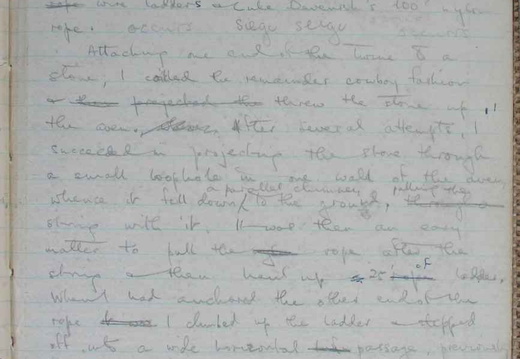 rope wire ladders & Luke Devenish's 100' nylon
rope. occurs Siege serge
Attaching one end of the twine to a
stone, I coiled the remainder cowboy fashion
& then projected the threw the stone up
the aven. After several attempts, I
succeeded in projecting the stone through
a small loophole in one wall of the aven,
a parallel chimney pulling the
whence it fell down to the ground, through a
string with it. It was then an easy
matter to pull the rope after the
string & then haul up 25' rope of ladder.
When I had anchored the other end of the
rope I climbed up the ladder & stepped
off into a wide horizontal passage previously